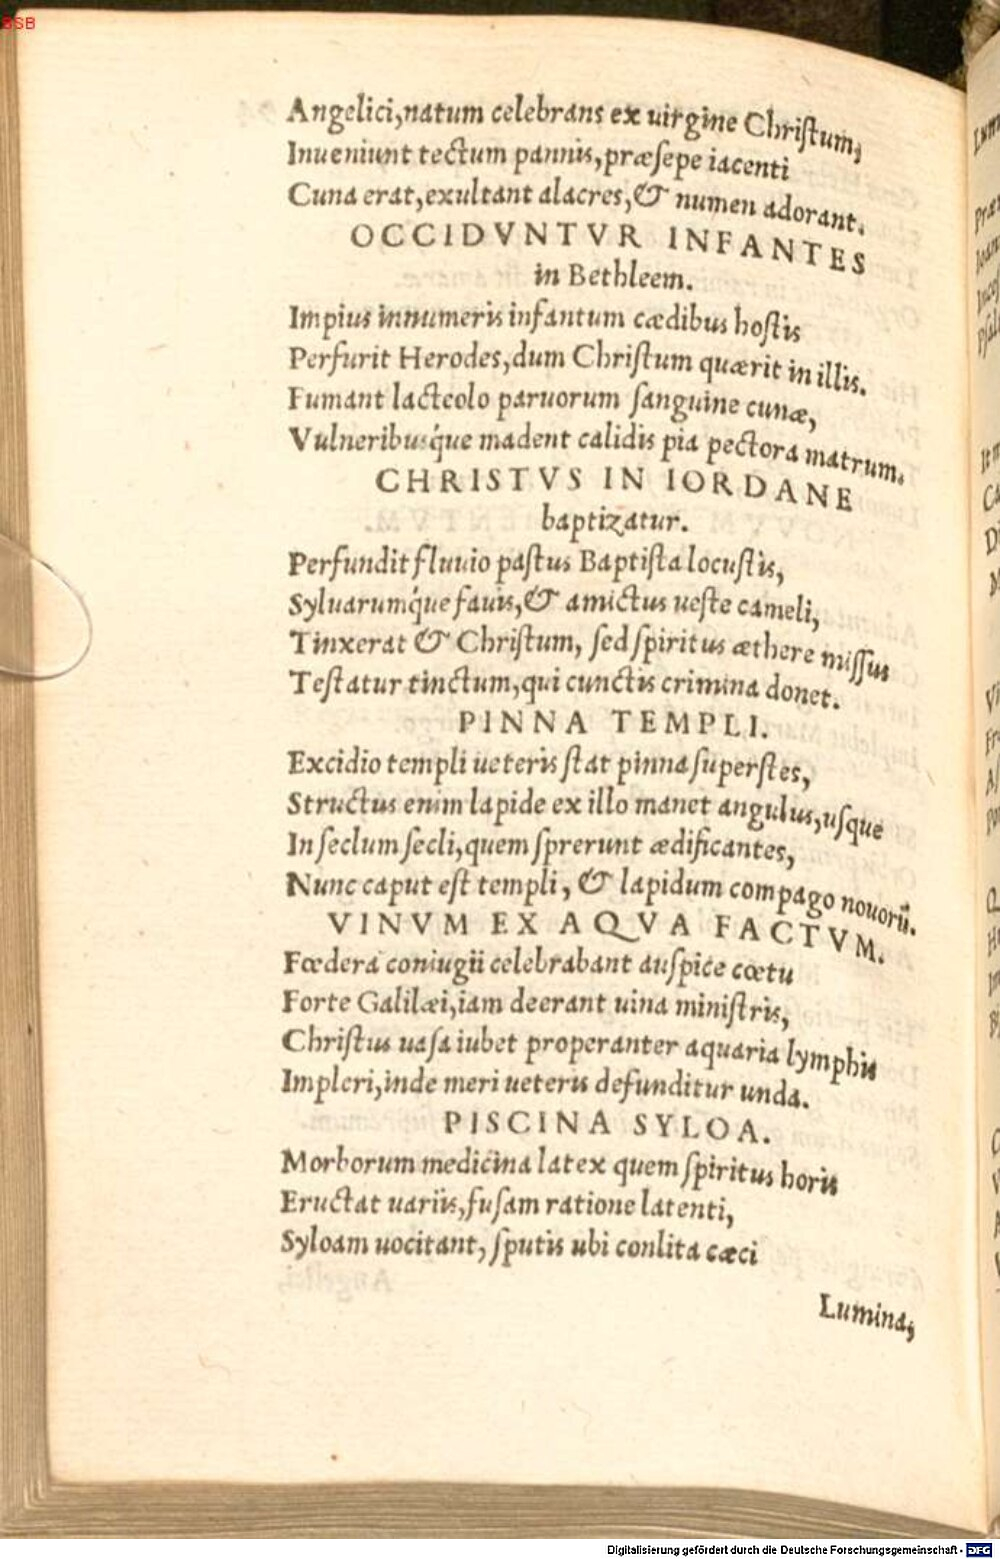 BSB
Angelici, natum celebrans ex uirgine Chriſtum,
Inueniunt tectum pannis, præſepe iacenti
Cuna erat, exultant alacres, & numen adorant.
OCCIDVNTVR INFANTES
in Bethleem.
Impius innumeris infantum cædibus hoſtis
Perfurit Herodes, dum Chriſtum quærit in illis.
Fumant lacteolo paruorum ſanguine cunæ,
Vulneribusq́ue madent calidis pia pectora matrum.
CHRISTVS IN IORDANE
baptizatur.
Perfundit fluuio paſtus Baptiſta locuſtis,
Syluarumq́ue fauis, & amictus ueſte cameli,
Tinxerat & Chriſtum, ſed ſpiritus æthere miſſus
Teſtatur tinctum, qui cunctis crimina donet.
PINNA TEMPLI.
Excidio templi ueteris ſtat pinna ſuperſtes,
Structus enim lapide ex illo manet angulus, uſque
In ſeclum ſecli, quem ſprerunt ædificantes,
Nunc caput eſt templi, & lapidum compago nouorū.
VINVM EX AQVA FACTVM.
Fœdera coniugii celebrabant auſpice cœtu
Forte Galilæi, iam deerant uina miniſtris,
Chriſtus uaſa iubet properanter aquaria lymphis
Impleri, inde meri ueteris defunditur unda.
PISCINA SYLOA.
Morborum medicina latex quem ſpiritus horis
Eructat uariis, fuſam ratione latenti,
Syloam uocitant, ſputis ubi conlita cæci
Lumina,
Digitalisierung gefördert durch die Deutsche Forschungsgemeinschaft - DFG